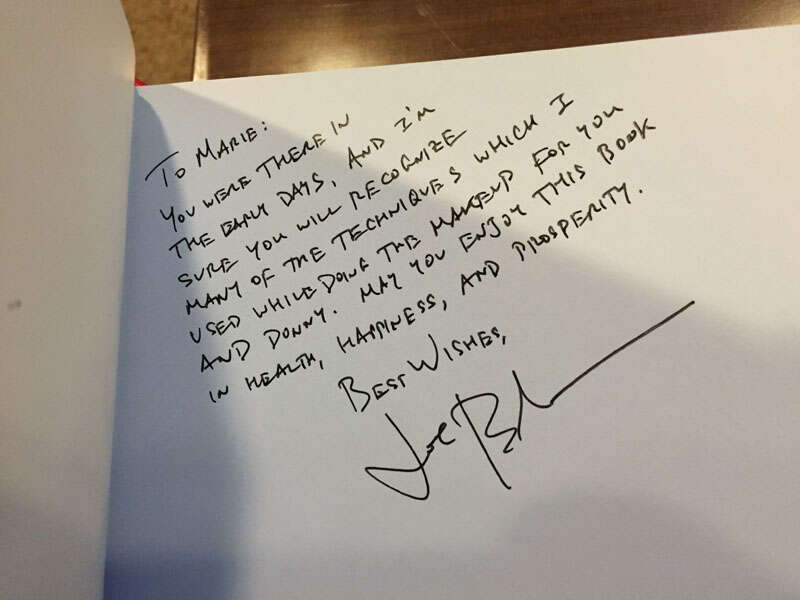 TO MARIE:
YOU WERE THERE IN
THE EARLY DAYS, AND I'M
SURE YOU WILL RECOGNIZE
MANY OF THE TECHNIQUES WHICH I
USED WHILE DOING THE MAKEUP FOR YOU
AND DONNY. MAY YOU ENJOY THIS BOOK
IN HEALTH, HAPPINESS, AND PROSPERITY.
BEST WISHES,
Joe